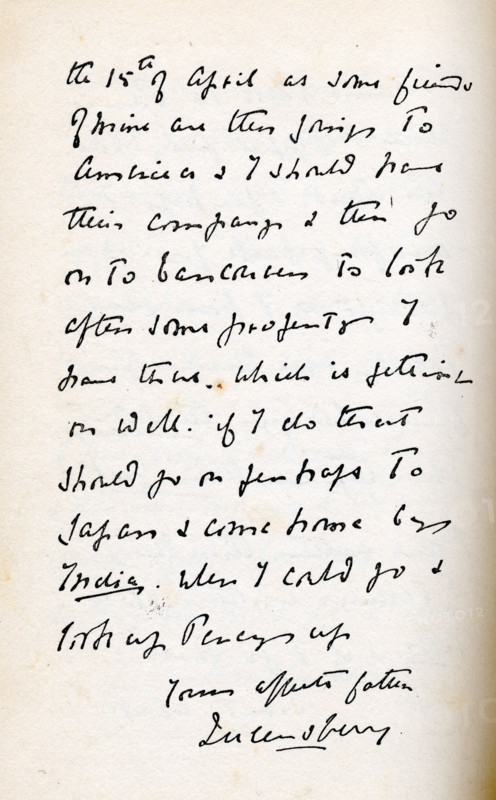 the 15th of April as some friends
of mine are then going To
America & I should have
their company & then go
on To Vancouver To look
after some property I
have there. which is getting
on well. if I do that
should go on perhaps To
Japan & come home by
India. when I could go &
look up Percy up
Yours affecte father
Queensberry.